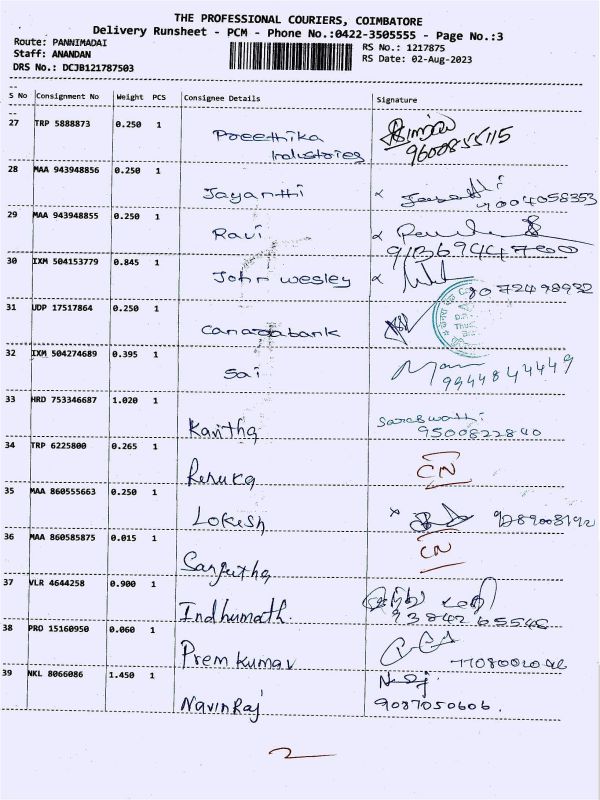 THE PROFESSIONAL COURIERS, COIMBATORE
Delivery Runsheet - PCM - Phone No.:0422-3505555 - Page No.:3
Route: PANNIMADAI
RS No.: 1217875
Staff: ANANDAN
RS Date: 02-Aug-2023
DRS No.: DCJB121787503
--
S No Consignment No Weight PCS Consignee Details Signature
--
27 TRP 5888873 0.250 1 Preethika
Industries
9600855115
28 MAA 943948856 0.250 1 Jayanthi
9004058353
29 MAA 943948855 0.250 1 Ravi
30 IXM 504153779 0.845 1 John wesley
8072498932
31 UDP 17517864 0.250 1 Canarabank
32 IXM 504274689 0.395 1 Sai
9944844449
33 HRD 753346687 1.020 1 Kavitha Saraswathi
9500822840
34 TRP 6225800 0.265 1 Renuka CN
35 MAA 860555663 0.250 1 Lokesh
9289008192
36 MAA 860585875 0.015 1 Sangeetha CN
37 VLR 4644258 0.900 1 Indhumath.
38 PRO 15160950 0.060 1 Premkumar
39 NKL 8066086 1.450 1 NavinRaj
9087050606.